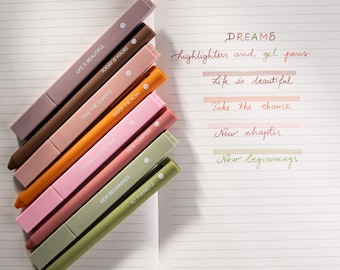 DREAMS
highlighters and gel pens
Life is beautiful
Take the chance
New chapter
New beginnings
LIFE IS BEAUTIFUL
TODAY IS YOURS
TAKE THE CHANCE
ENJOY THE NOW
NEW BEGINNINGS